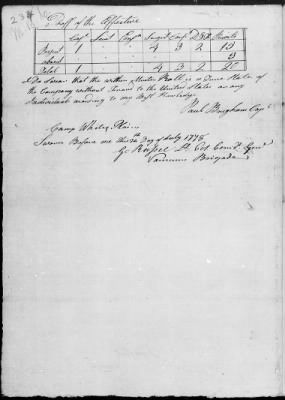 Proof of the Effective
Capt Lieut Ens Sergt Corp D&F Privats
Present 1 4 3 2 19
absent 2
Total 1 4 3 2 21
I Do Swear that the within Muster Roll is a True State of
the Company without Fraud to the United States or any
Individual according to my Best Knowledge
Paul Bingham Capt
Camp White Plains
Sworn Before me this Day of July 1778
Lt Col Comdt
Varnums Brigade